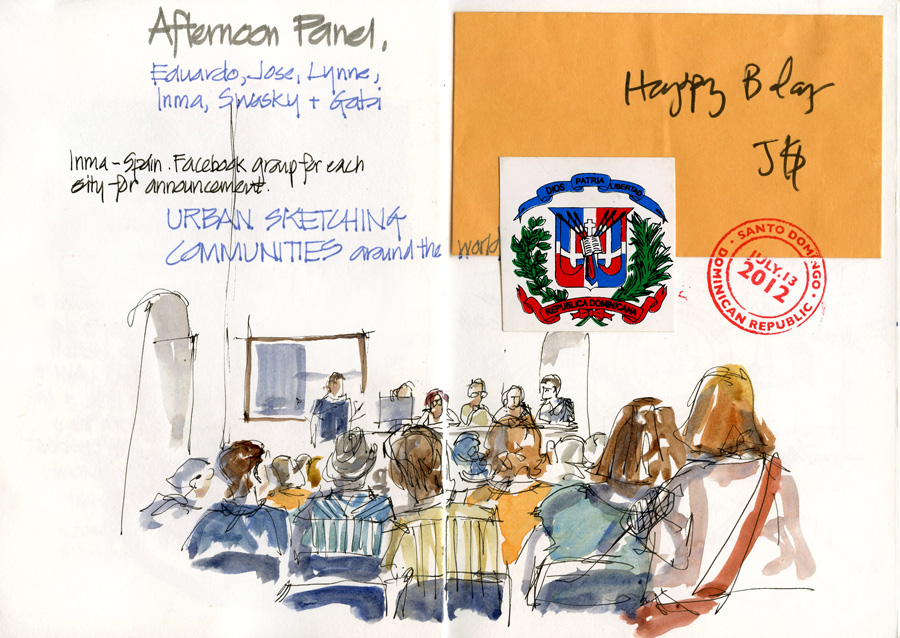 Afternoon Panel.
Eduardo, Jose, Lynne,
Inma, Swasky + Gabi
Inma - Spain. Facebook group for each
city for announcement.
URBAN SKETCHING
COMMUNITIES around the world
Happy B day
DIOS PATRIA LIBERTAD
REPUBLICA DOMINICANA
SANTO DOMINGO
JULY.13
2012
DOMINICAN REPUBLIC